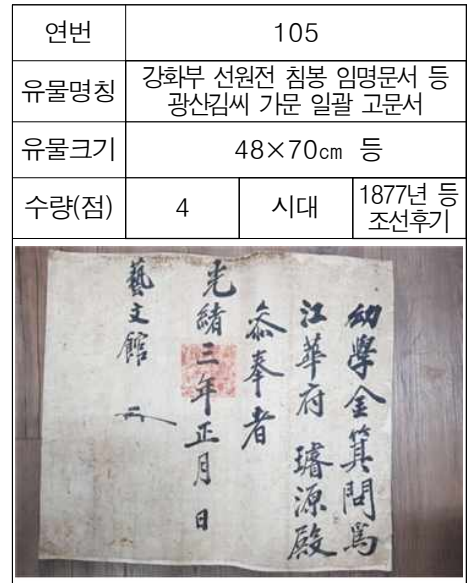 연번 105
유물명칭 강화부 선원전 침봉 임명문서 등
광산김씨 가문 일괄 고문서
유물크기 48×70㎝ 등
수량(점) 4 시대 1877년 등
조선후기
幼學金箕問爲
江華府 璿源殿
叅奉者
光緖三年正月 日
藝文館